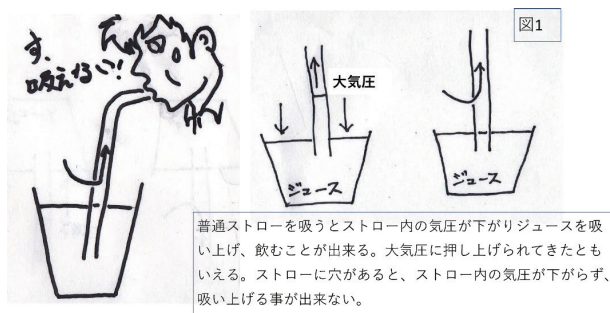 図1
す、
吸えない!
大気圧
ジュース
ジュース
普通ストローを吸うとストロー内の気圧が下がりジュースを吸
い上げ、飲むことが出来る。大気圧に押し上げられてきたとも
いえる。ストローに穴があると、ストロー内の気圧が下がらず、
吸い上げる事が出来ない。